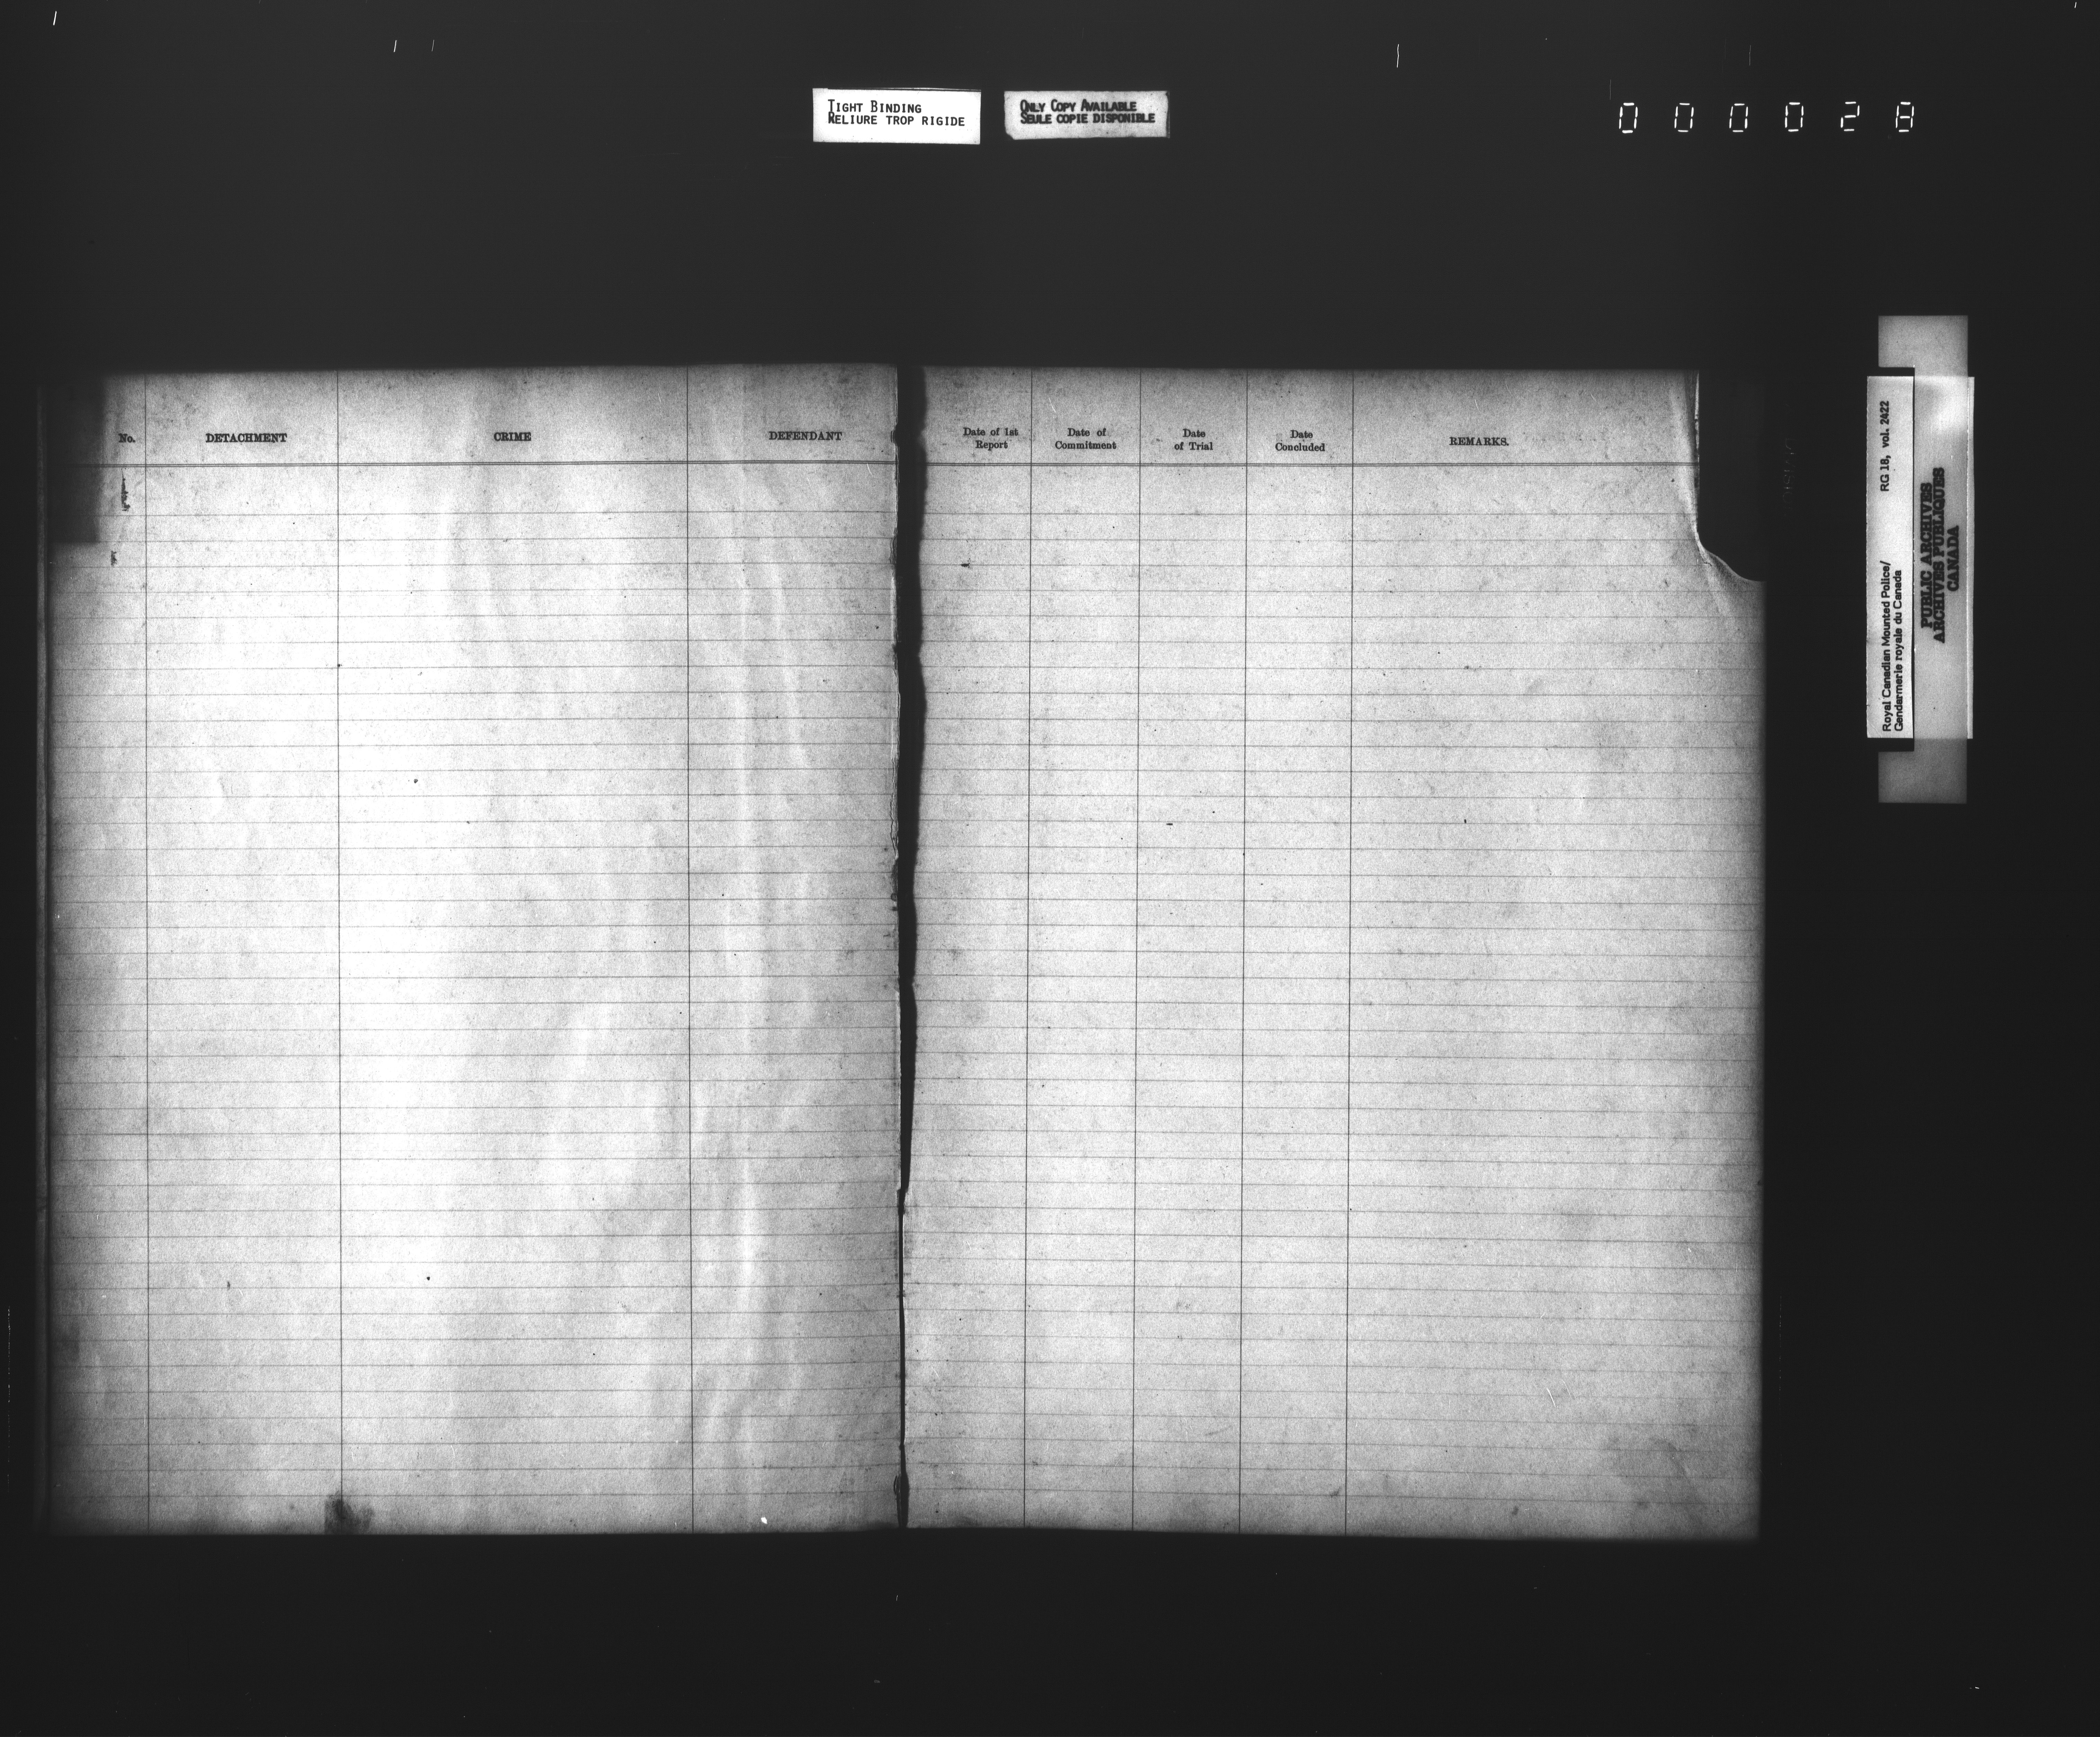 TIGHT BINDING
RELIURE TROP RIGIDE
ONLY COPY AVAILABLE
SEULE COPIE DISPONIBLE
000028
No.
DETACHMENT
CRIME
DEFENDANT
Date of 1st
Report
Date of
Commitment
Date
of Trial
Date
Concluded
REMARKS.
Royal Canadian Mounted Police/ RG 18, vol. 2422
Gendarmerie royale du Canada
PUBLIC ARCHIVES
ARCHIVES PUBLIQUES
CANADA